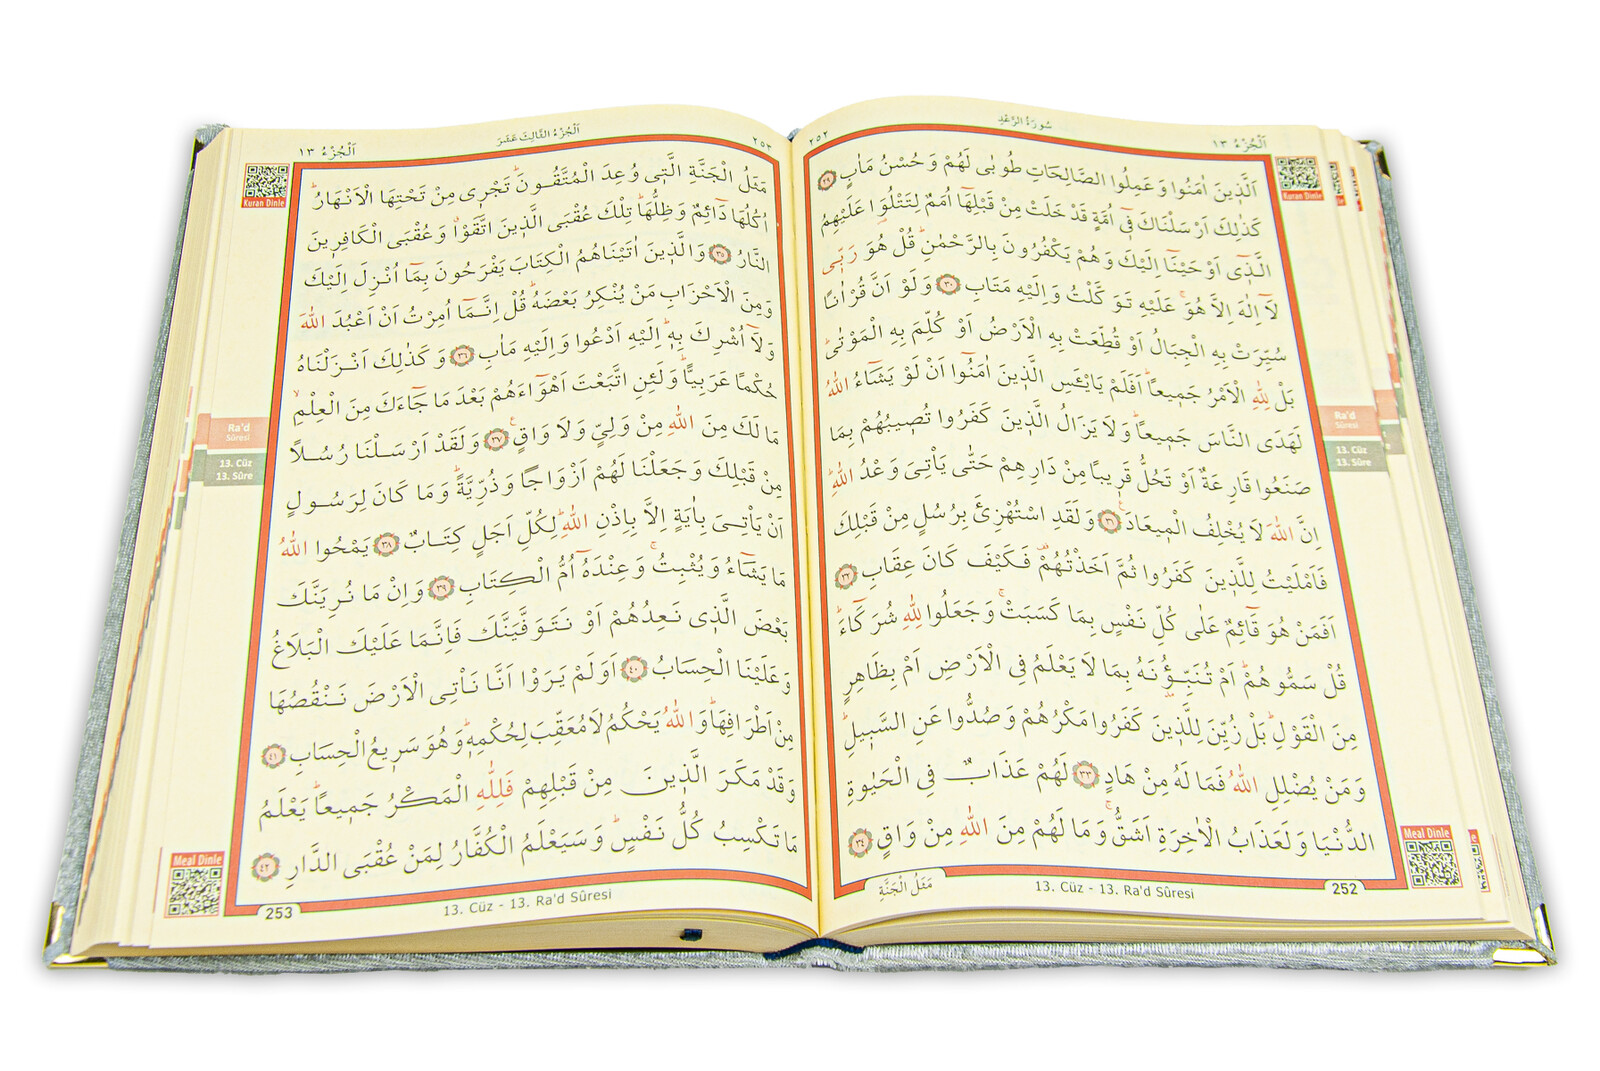 اَلْجُزْءُ ١٣
سُورَةُ الرَّعْدِ
٢٥٢
اَلَّذ۪ينَ اٰمَنُوا وَعَمِلُوا الصَّالِحَاتِ طُوبٰى لَهُمْ وَحُسْنُ مَاٰبٍ ﴿٢٩﴾
كَذٰلِكَ اَرْسَلْنَاكَ ف۪ٓي اُمَّةٍ قَدْ خَلَتْ مِنْ قَبْلِهَٓا اُمَمٌ لِتَتْلُوَ۬ا عَلَيْهِمُ
الَّذ۪ٓي اَوْحَيْنَٓا اِلَيْكَ وَهُمْ يَكْفُرُونَ بِالرَّحْمٰنِۜ قُلْ هُوَ رَبّ۪ي
لَٓا اِلٰهَ اِلَّا هُوَۚ عَلَيْهِ تَوَكَّلْتُ وَاِلَيْهِ مَتَابِ ﴿٣٠﴾ وَلَوْ اَنَّ قُرْاٰنًا
سُيِّرَتْ بِهِ الْجِبَالُ اَوْ قُطِّعَتْ بِهِ الْاَرْضُ اَوْ كُلِّمَ بِهِ الْمَوْتٰىۜ
بَلْ لِلّٰهِ الْاَمْرُ جَم۪يعًاۜ اَفَلَمْ يَا۬يْـَٔسِ الَّذ۪ينَ اٰمَنُٓوا اَنْ لَوْ يَشَٓاءُ اللّٰهُ
لَهَدَى النَّاسَ جَم۪يعًاۜ وَلَا يَزَالُ الَّذ۪ينَ كَفَرُوا تُص۪يبُهُمْ بِمَا
صَنَعُوا قَارِعَةٌ اَوْ تَحُلُّ قَر۪يبًا مِنْ دَارِهِمْ حَتّٰى يَأْتِيَ وَعْدُ اللّٰهِۜ
اِنَّ اللّٰهَ لَا يُخْلِفُ الْم۪يعَادَ۟ ﴿٣١﴾ وَلَقَدِ اسْتُهْزِئَ بِرُسُلٍ مِنْ قَبْلِكَ
فَاَمْلَيْتُ لِلَّذ۪ينَ كَفَرُوا ثُمَّ اَخَذْتُهُمْ۠ فَكَيْفَ كَانَ عِقَابِ ﴿٣٢﴾
اَفَمَنْ هُوَ قَٓائِمٌ عَلٰى كُلِّ نَفْسٍ بِمَا كَسَبَتْۚ وَجَعَلُوا لِلّٰهِ شُرَكَٓاءَۜ
قُلْ سَمُّوهُمْۜ اَمْ تُنَبِّؤُ۫نَهُ بِمَا لَا يَعْلَمُ فِي الْاَرْضِ اَمْ بِظَاهِرٍ
مِنَ الْقَوْلِۜ بَلْ زُيِّنَ لِلَّذ۪ينَ كَفَرُوا مَكْرُهُمْ وَصُدُّوا عَنِ السَّب۪يلِۜ
وَمَنْ يُضْلِلِ اللّٰهُ فَمَا لَهُ مِنْ هَادٍ ﴿٣٣﴾ لَهُمْ عَذَابٌ فِي الْحَيٰوةِ
الدُّنْيَا وَلَعَذَابُ الْاٰخِرَةِ اَشَقُّۚ وَمَا لَهُمْ مِنَ اللّٰهِ مِنْ وَاقٍ ﴿٣٤﴾
مَثَلُ الْجَنَّةِ
13. Cüz - 13. Ra'd Sûresi
252
Kuran Dinle
Ra'd
Sûresi
13. Cüz
13. Sûre
Meal Dinle
٢٥٣
اَلْجُزْءُ الثَّالِثَ عَشَرَ
اَلْجُزْءُ ١٣
مَثَلُ الْجَنَّةِ الَّت۪ي وُعِدَ الْمُتَّقُونَۜ تَجْر۪ي مِنْ تَحْتِهَا الْاَنْهَارُۜ
اُكُلُهَا دَٓائِمٌ وَظِلُّهَاۜ تِلْكَ عُقْبَى الَّذ۪ينَ اتَّقَوْاۗ وَعُقْبَى الْكَافِر۪ينَ
النَّارُ ﴿٣٥﴾ وَالَّذ۪ينَ اٰتَيْنَاهُمُ الْكِتَابَ يَفْرَحُونَ بِمَٓا اُنْزِلَ اِلَيْكَ
وَمِنَ الْاَحْزَابِ مَنْ يُنْكِرُ بَعْضَهُۜ قُلْ اِنَّمَٓا اُمِرْتُ اَنْ اَعْبُدَ اللّٰهَ
وَلَٓا اُشْرِكَ بِه۪ۜ اِلَيْهِ اَدْعُوا وَاِلَيْهِ مَاٰبِ ﴿٣٦﴾ وَكَذٰلِكَ اَنْزَلْنَاهُ
حُكْمًا عَرَبِيًّاۜ وَلَئِنِ اتَّبَعْتَ اَهْوَٓاءَهُمْ بَعْدَ مَا جَٓاءَكَ مِنَ الْعِلْمِۙ
مَا لَكَ مِنَ اللّٰهِ مِنْ وَلِيٍّ وَلَا وَاقٍ۟ ﴿٣٧﴾ وَلَقَدْ اَرْسَلْنَا رُسُلًا
مِنْ قَبْلِكَ وَجَعَلْنَا لَهُمْ اَزْوَاجًا وَذُرِّيَّةًۜ وَمَا كَانَ لِرَسُولٍ
اَنْ يَأْتِيَ بِاٰيَةٍ اِلَّا بِاِذْنِ اللّٰهِۜ لِكُلِّ اَجَلٍ كِتَابٌ ﴿٣٨﴾ يَمْحُوا اللّٰهُ
مَا يَشَٓاءُ وَيُثْبِتُۚ وَعِنْدَهُٓ اُمُّ الْكِتَابِ ﴿٣٩﴾ وَاِنْ مَا نُرِيَنَّكَ
بَعْضَ الَّذ۪ي نَعِدُهُمْ اَوْ نَتَوَفَّيَنَّكَ فَاِنَّمَا عَلَيْكَ الْبَلَاغُ
وَعَلَيْنَا الْحِسَابُ ﴿٤٠﴾ اَوَلَمْ يَرَوْا اَنَّا نَأْتِي الْاَرْضَ نَنْقُصُهَا
مِنْ اَطْرَافِهَاۜ وَاللّٰهُ يَحْكُمُ لَا مُعَقِّبَ لِحُكْمِه۪ۜ وَهُوَ سَر۪يعُ الْحِسَابِ ﴿٤١﴾
وَقَدْ مَكَرَ الَّذ۪ينَ مِنْ قَبْلِهِمْ فَلِلّٰهِ الْمَكْرُ جَم۪يعًاۜ يَعْلَمُ
مَا تَكْسِبُ كُلُّ نَفْسٍۜ وَسَيَعْلَمُ الْكُفَّارُ لِمَنْ عُقْبَى الدَّارِ ﴿٤٢﴾
13. Cüz - 13. Ra'd Sûresi
253
Kuran Dinle
Ra'd
Sûresi
13. Cüz
13. Sûre
Meal Dinle